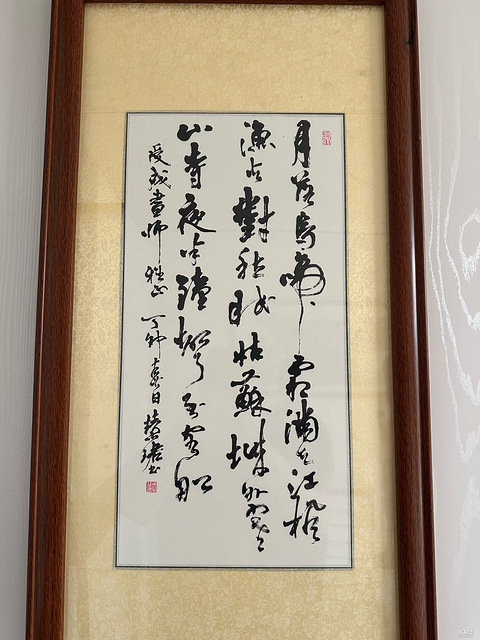 月落烏啼霜滿天江楓
漁火對愁眠姑蘇城外寒
山寺夜半鐘聲到客船
成畫師雅正 丁卯春日 書